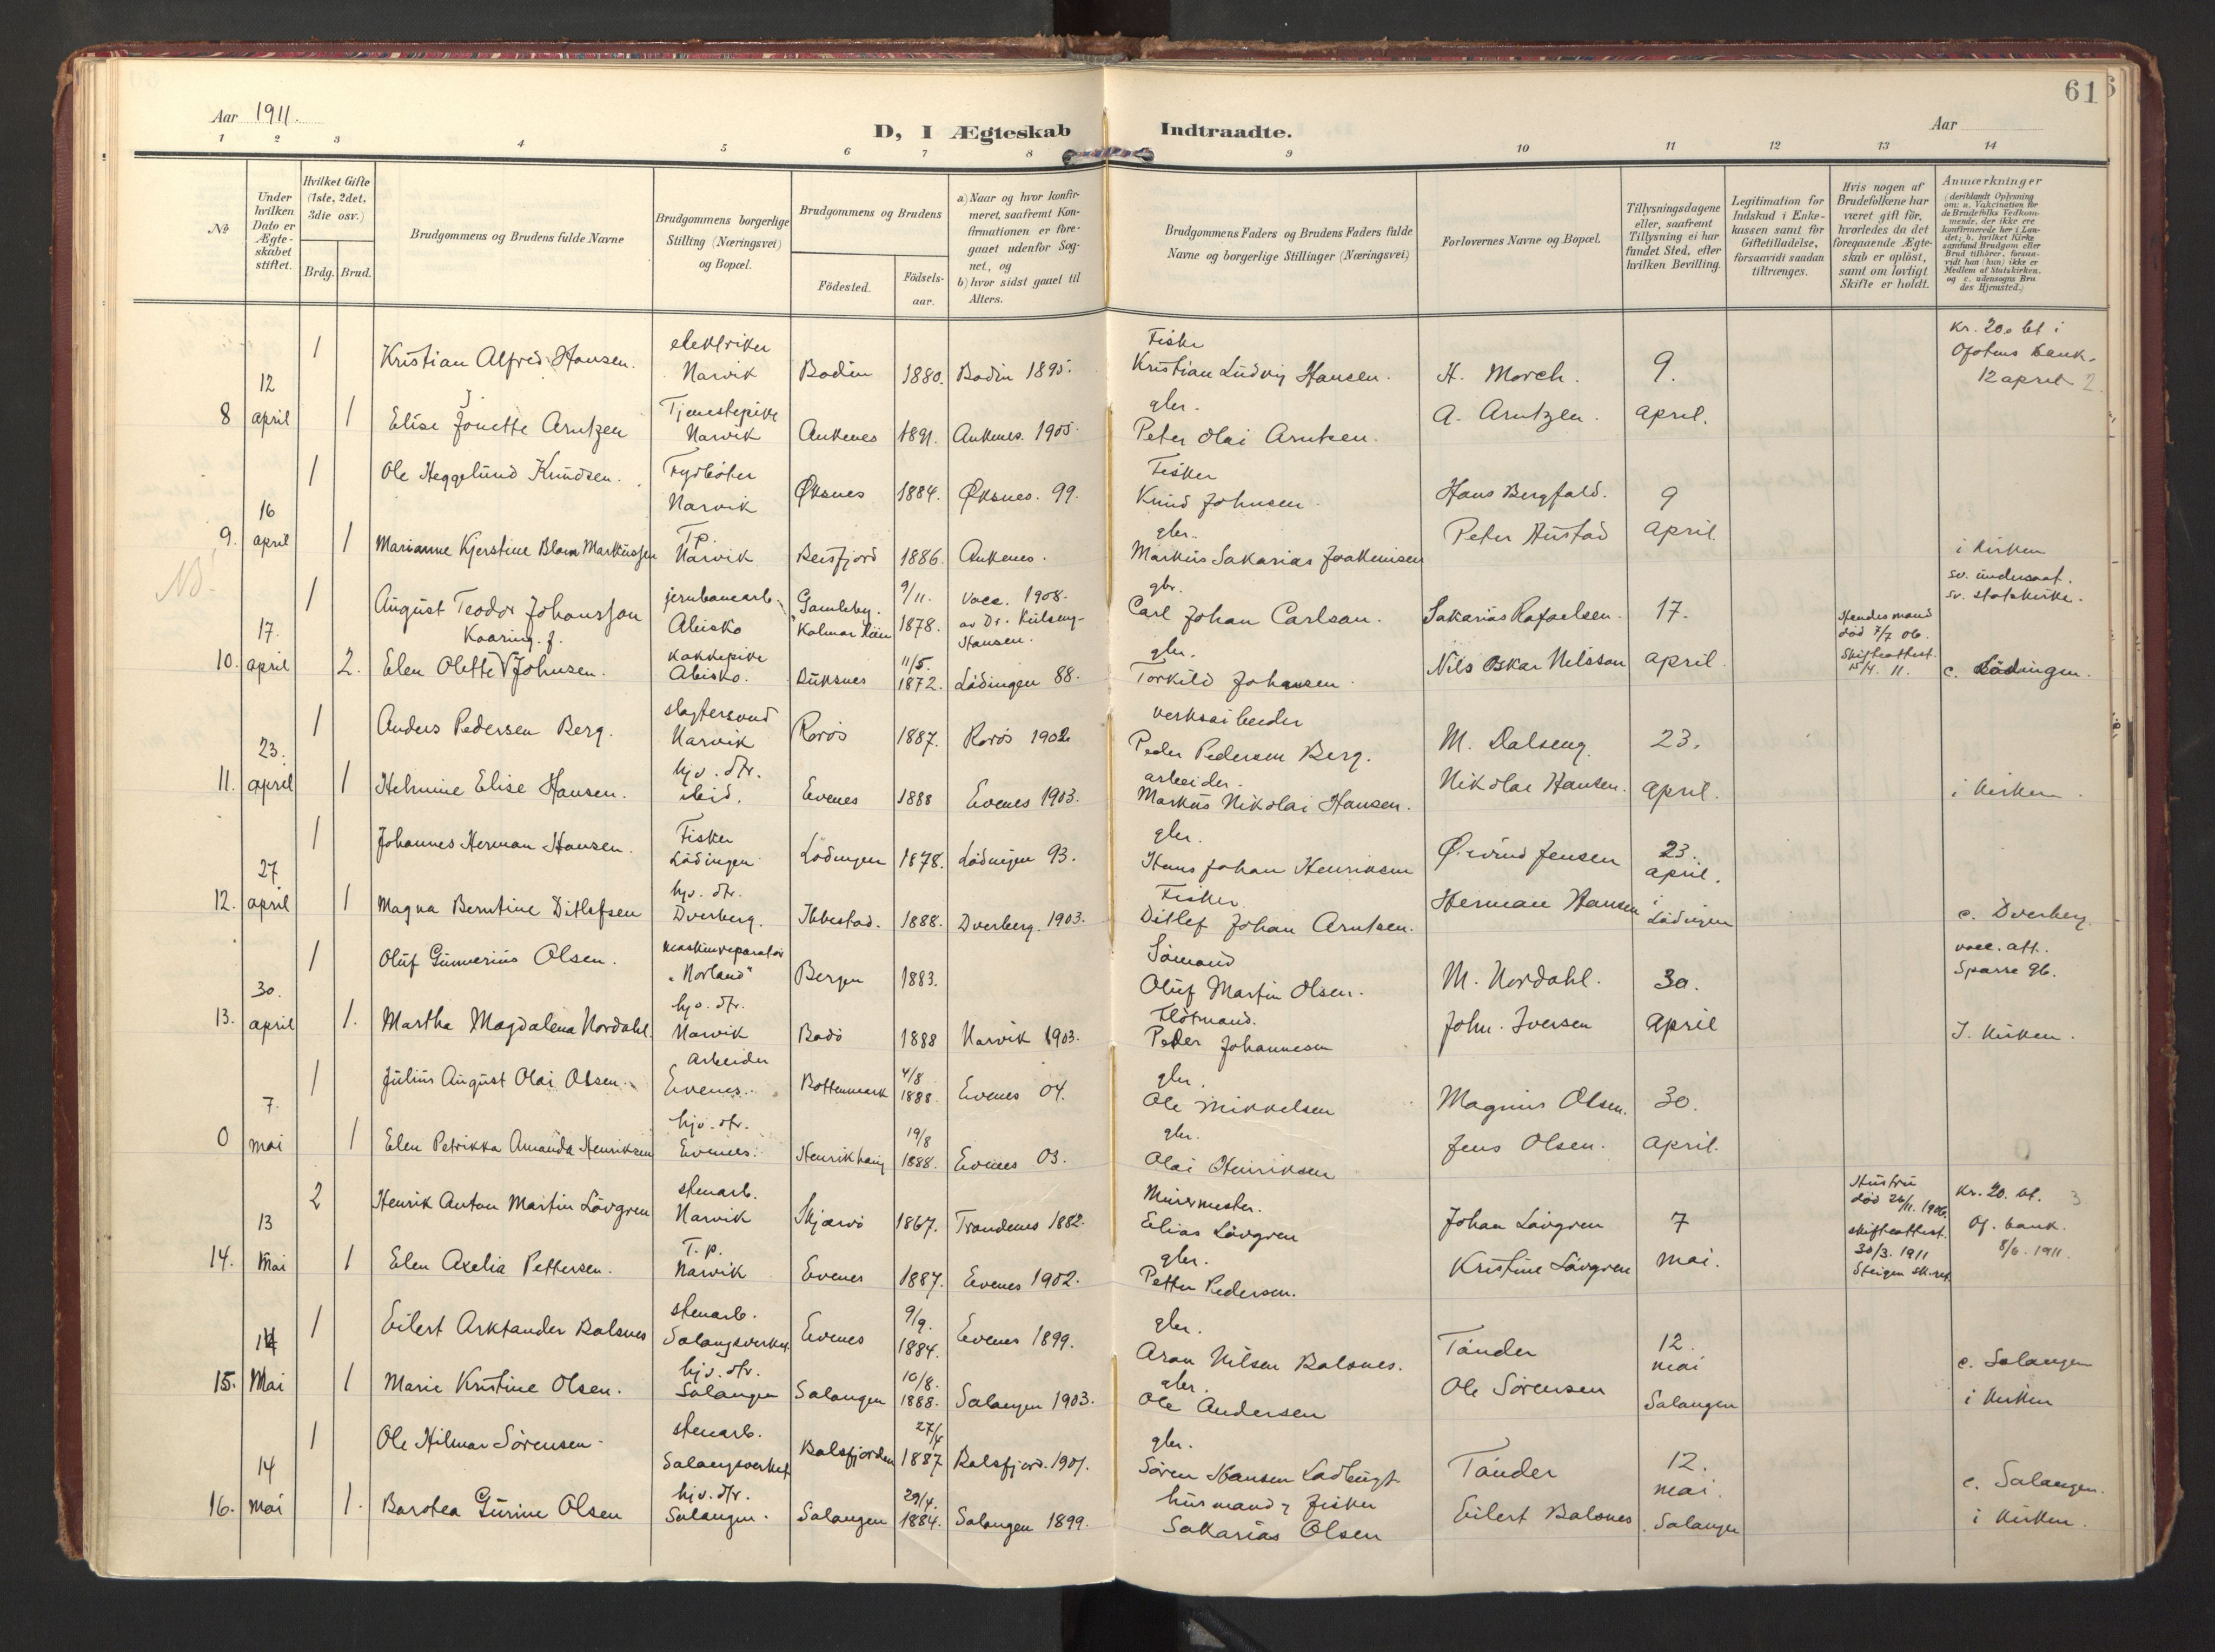 61
Aar 1911.
D, I Ægteskab Indtraadte.
Aar
1 2 3 4 5 6 7 8 9 10 11 12 13 14
No
Under hvilken Dato er Ægteskabet stiftet.
Hvilket Gifte (1ste, 2det, 3die osv.)
Brdg. Brud.
Brudgommens og Brudens fulde Navne
Brudgommens borgerlige Stilling (Næringsvei) og Bopæl.
Brudgommens og Brudens
Födested.
Födsels-aar.
a) Naar og hvor konfirmeret, saafremt Konfirmationen er foregaaet udenfor Sognet, og
b) hvor sidst gaaet til Alters.
Brudgommens Faders og Brudens Faders fulde Navne og borgerlige Stillinger (Næringsvei)
Forlovernes Navne og Bopæl.
Tillysningsdagene eller, saafremt Tillysning ei har fundet Sted, efter hvilken Bevilling.
Legitimation for Indskud i Enkekassen samt for Giftetilladelse, forsaavidt saadan tiltrænges.
Hvis nogen af Brudefolkene har været gift för, hvorledes da det foregaaende Ægteskab er oplöst, samt om lovligt Skifte er holdt.
Anmærkninger (deriblandt Oplysning om: a. Vakcination for de Brudefolks Vedkommende, der ikke ere konfirmerede her i Landet; b. hvilket Kirkesamfund Brudgom eller Brud tilhører, forsaavidt han (hun) ikke er Medlem af Statskirken, og c. udensogns Brudes Hjemsted.)
1 Kristian Alfred Hansen. elektriker Narvik Bodin 1880. Bodin 1895. Fisker Kristian Ludvig Hansen. H. Morch. 9. kr. 20. bet i Ofotens bank. 12 april 2
8 12 april 1 Elise Jonette Arntzen J. Tjenestepike Narvik Ankenes 1891. Ankenes. 1905. gbr. Peter Olai Arntsen. A. Arntzen. april.
1 Ole Heggelund Knudsen. Fyrböter Narvik Øksnes 1884. Øksnes. 99. Fisker Knud Johnsen. Hans Bergfald. 9
9. 16 april 1 Marianne Kjerstine Blom Markussen T.p. Narvik Beisfjord 1886. Ankenes. gbr. Markus Sakarias Joakimsen Peter Hustad april. i kirken
NB.
1 August Teodor Johansson jernbanearb. Abisko Gamleby. "Kalmar län 9/11. 1878. vacc. 1908. av Dr. Hansen. gbr. Carl Johan Carlson. Sakarias Rafaelsen. 17. Hendes mand död 7/7 06. sv. undersaat. sv. statskirke.
10. 17. april 2. Elen Olette Johnsen. Kaaring. f. kokkepike Abisko. Buksnes 11/5. 1872. Lödingen 88. gbr. Torkild Johansen. Nils Oskar Nilsson april. Skifteattest. 15/4. 11. c. Lödingen.
1 Anders Pedersen Berg. slagtersvend Narvik Rörös 1887. Rörös 1902. verksarbeider Peder Pedersen Berg. M. Dalseng. 23.
11. 23. april 1 Helmine Elise Hansen. hjv. dtr. ibid. Evenes 1888 Evenes 1903. arbeider. Markus Nikolai Hansen. Nikolai Hansen. april. i kirken.
1 Johannes Herman Hansen. Fisker Lödingen Lödingen 1878. Lödingen 93. gbr. Hans Johan Henriksen Øivind Jensen 23. april.
12. 27 april 1 Magna Berntine Ditlefsen hjv. dtr. Dverberg. Ibbestad. 1888. Dverberg. 1903. Fisker. Ditlef Johan Arntsen. Herman Hansen i Lödingen c. Dverberg.
1 Oluf Gunnerius Olsen. maskinreparatör "Norland" Bergen 1883. Sömand Oluf Martin Olsen. M. Nordahl. 30. vacc. att. Sparre 96.
13. 30. april 1. Martha Magdalena Nordahl. hjv. dtr. Narvik Bodö 1888 Narvik 1903. Flötmand. Peder Johannesen John. Iversen april I. kirken.
1 Julius August Olai Olsen. arbeider Evenes. Bottenmark 4/8 1888 Evenes 04. gbr. Ole Mikkelsen Magnus Olsen. 30.
0 7. mai 1 Elen Petrikka Amanda Henriksen hjv. dtr. Evenes. Henrikhaug 19/8 1888. Evenes 03. gbr. Olai Henriksen Jens Olsen. april. 0
2 Henrik Anton Martin Lövgren stenarb. Narvik Skjærvö 1867. Trondenes 1882. Murermester. Elias Lövgren Johan Lövgren 7 Hustru död 26/11. 1906. skifteattest. kr. 20. bet. 3 Of. bank.
14. 13 Mai 1 Elen Axelia Pettersen. T.p. Narvik Evenes 1887. Evenes 1902. gbr. Petter Pedersen. Kristine Lövgren mai. 30/3. 1911 Steigen sk.ret. 8/6. 1911.
1 Eilert Arktander Balsnes stenarb. Salangsverket. Evenes 9/9. 1884. Evenes 1899. gbr. Aron Nilsen Balsnes. Tander 12. mai
15. 14 Mai 1 Marie Kristine Olsen. hjv. dtr. Salangen Salangen 10/8. 1888. Salangen 1903. gbr. Ole Andersen Ole Sörensen Salangen c. Salangen i kirken
1 Ole Hilmar Sörensen. stenarb. Salangsverket Balsfjorden 27/4 1887 Balsfjord. 1901. gbr. Sören Hansen Ladbugt Tander 12. mai.
16. 14 mai 1. Barotea Gurine Olsen hjv. dtr. Salangen. Salangen 29/4. 1884. Salangen 1899. husmand & fisker Sakarias Olsen Eilert Balsnes Salangen c. Salangen. i kirken.